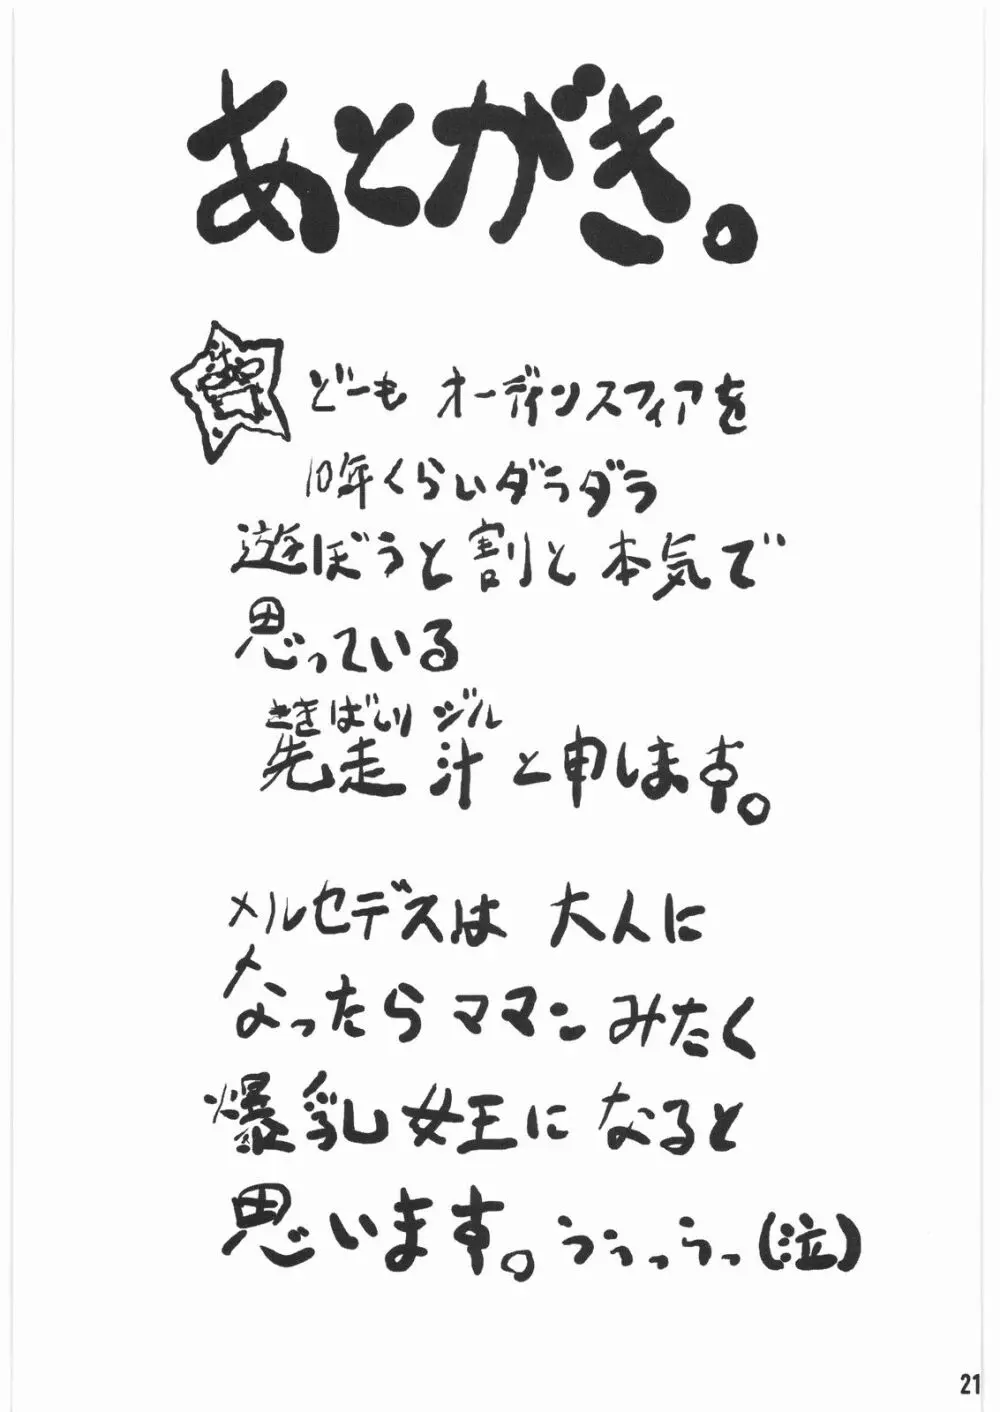 あとがき。
どーも オーディンスフィアを
10年くらいダラダラ
遊ぼうと割と本気で
思っている
さきばしり ジル
先走 汁と申します。
メルセデスは大人に
なったらママンみたく
爆乳女王になると
思います。うぅっうっ(泣)
21